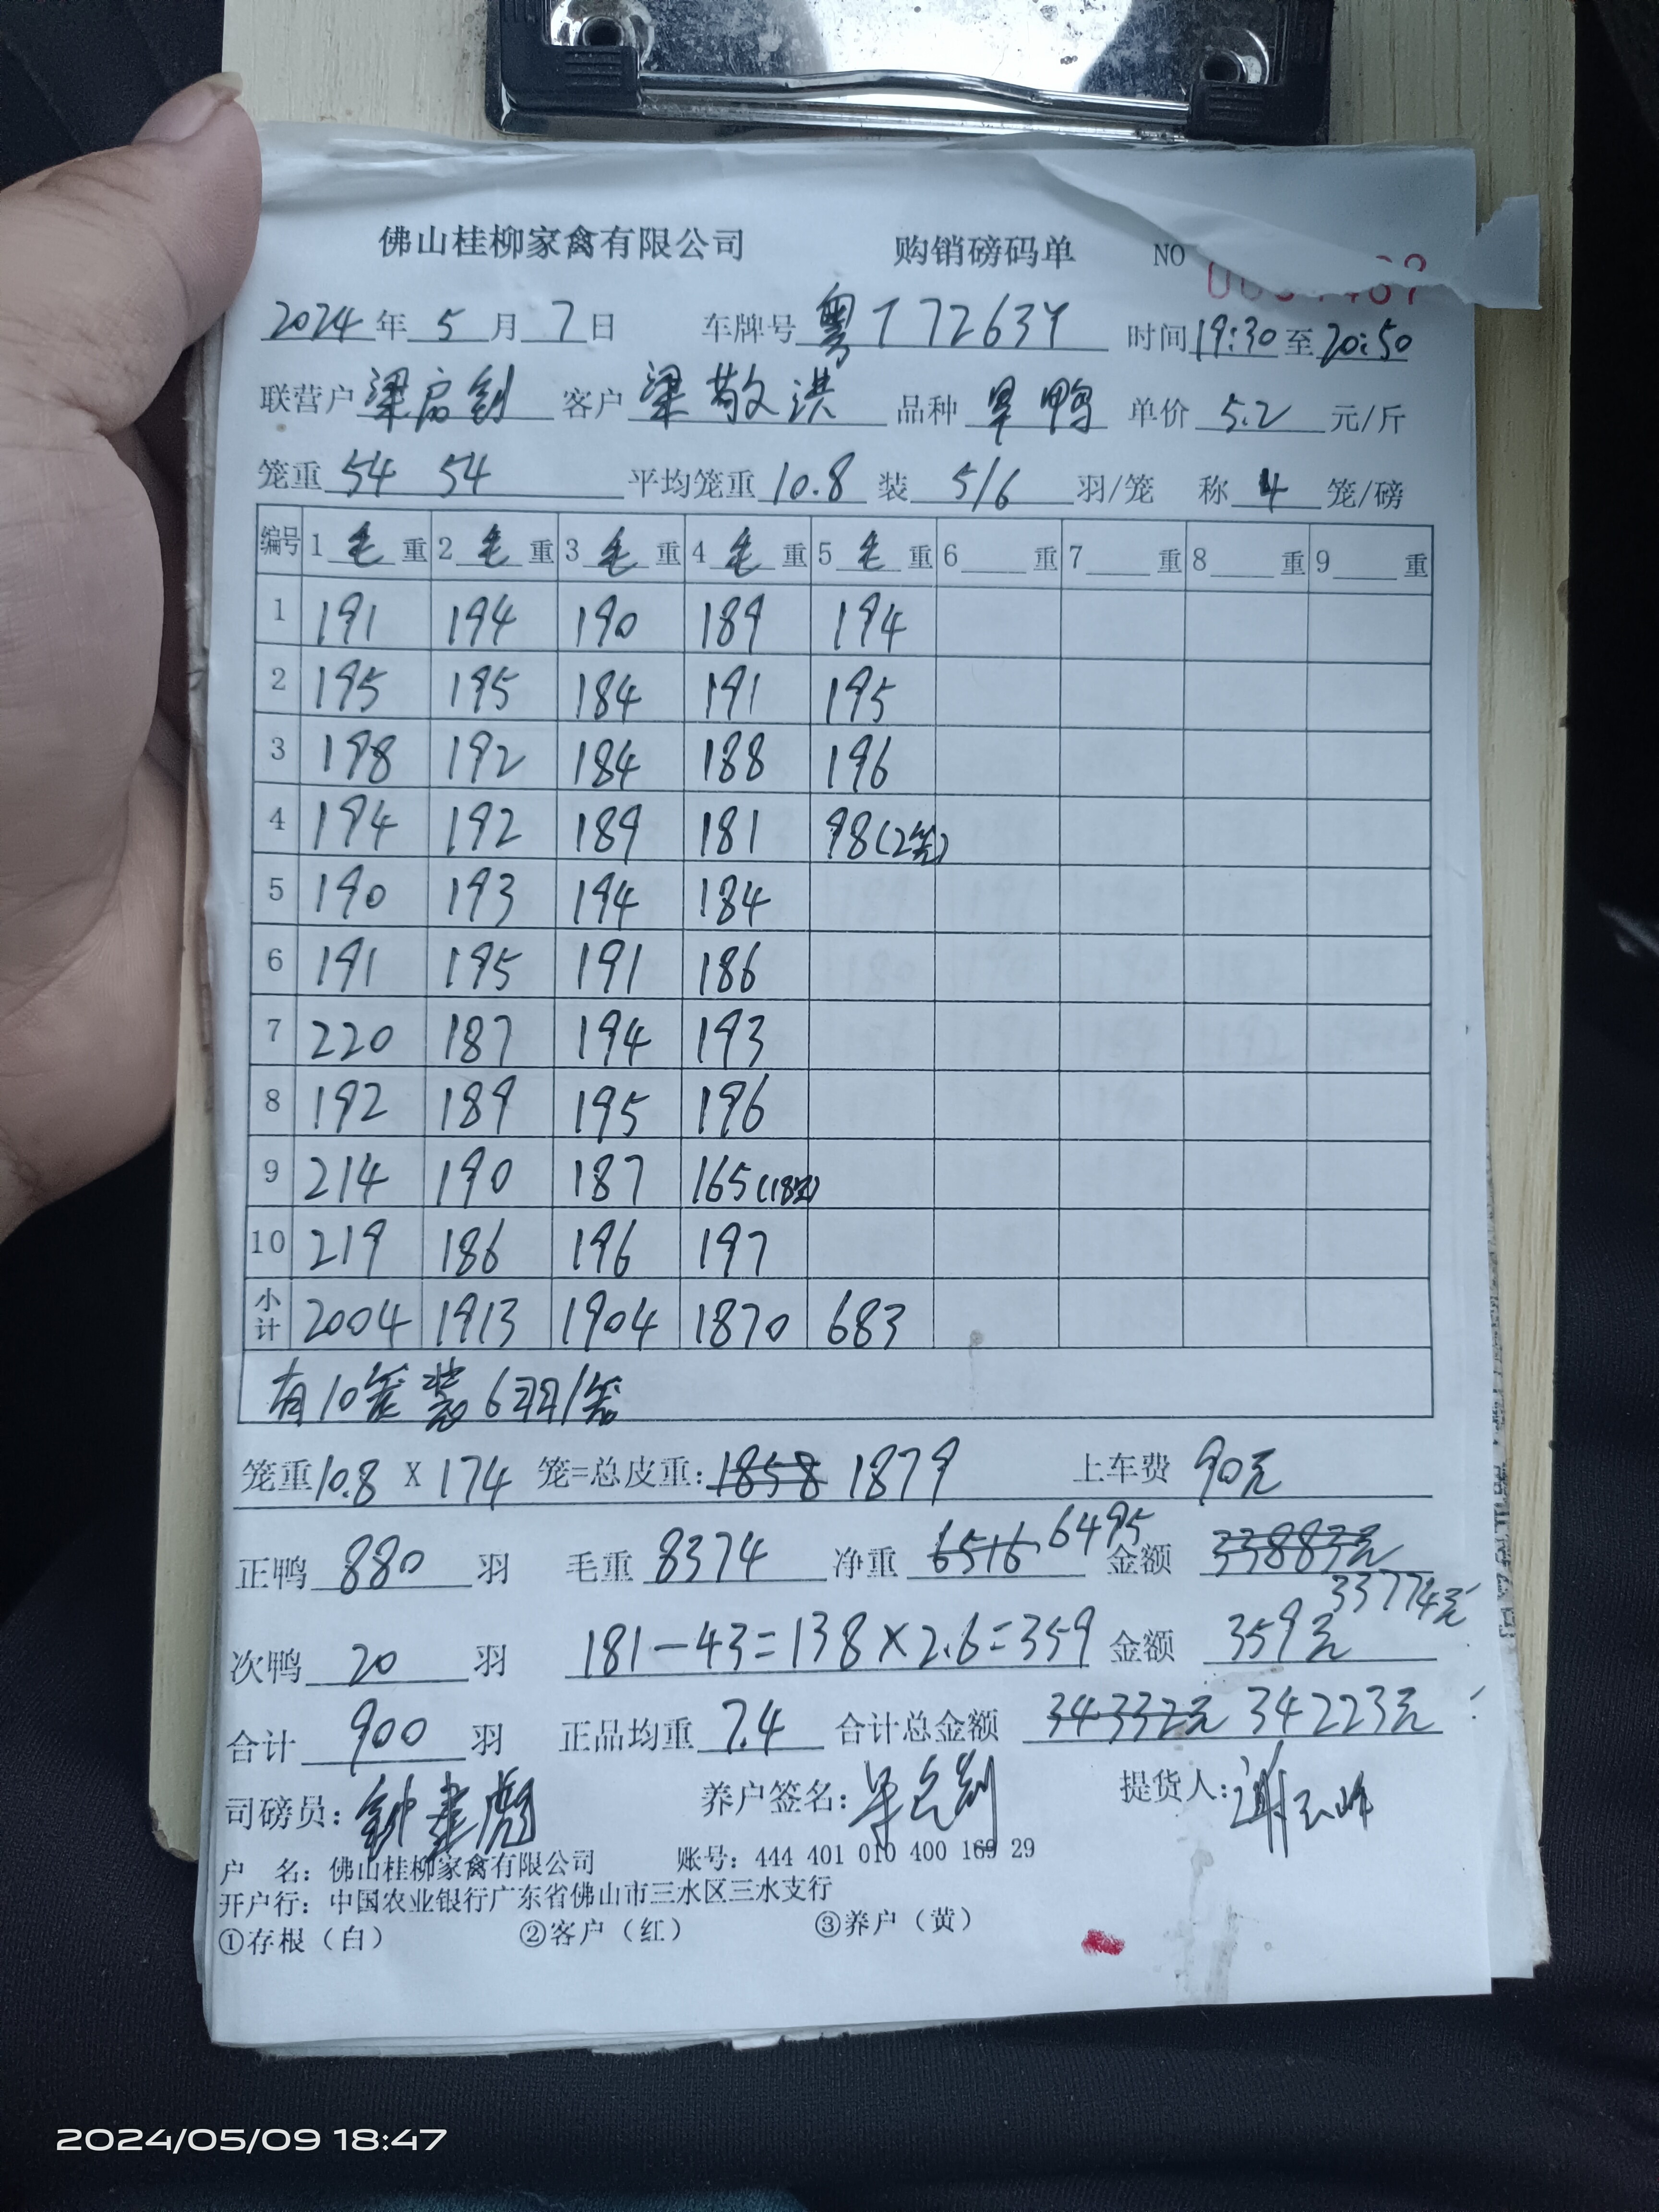 佛山桂柳家禽有限公司 购销磅码单 NO
2024年5月7日 车牌号 粤T7263Y 时间19:30至20:50
联营户 梁启钊 客户 梁敬洪 品种 旱鸭 单价 5.2 元/斤
笼重 54 54 平均笼重 10.8 装 5/6 羽/笼 称 4 笼/磅
编号 1 毛 重 2 毛 重 3 毛 重 4 毛 重 5 毛 重 6 重 7 重 8 重 9 重
1 191 194 190 189 194
2 195 195 184 191 195
3 198 192 184 188 196
4 194 192 189 181 98(2笼)
5 190 193 194 184
6 191 195 191 186
7 220 187 194 193
8 192 189 195 196
9 214 190 187 165(18羽)
10 219 186 196 197
小计 2004 1913 1904 1870 683
有10笼装6羽/笼
笼重10.8 X 174 笼=总皮重: 1858 1879 上车费 90元
正鸭 880 羽 毛重 8374 净重 6516 6495 金额 33883元
33774元
次鸭 20 羽 181-43=138×2.6=359 金额 359元
合计 900 羽 正品均重 7.4 合计总金额 34332元 34223元
司磅员: 养户签名: 提货人:
户 名: 佛山桂柳家禽有限公司 账号: 444 401 010 400 169 29
开户行: 中国农业银行广东省佛山市三水区三水支行
①存根(白) ②客户(红) ③养户(黄)
2024/05/09 18:47